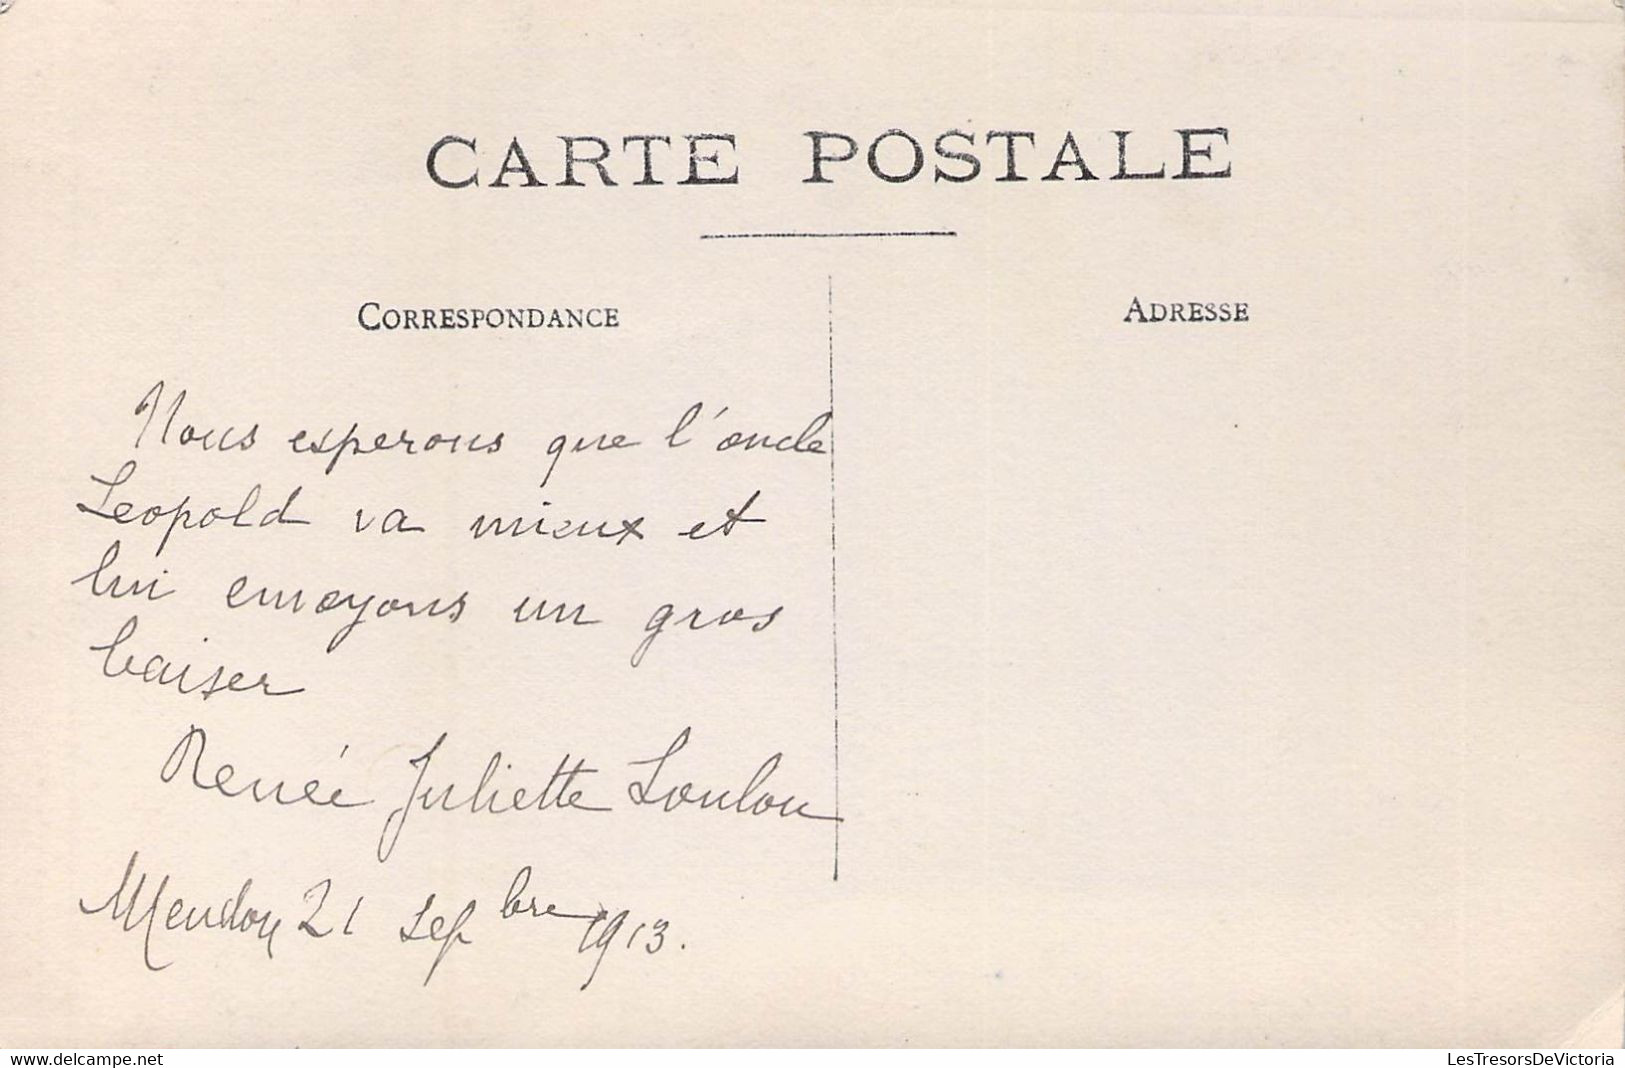 CARTE POSTALE
CORRESPONDANCE
ADRESSE
Nous esperons que l'oncle
Leopold va mieux et
lui envoyons un gros
baiser
Renée Juliette Loulou
Meudon 21 sepbre 1913.
www.delcampe.net
LesTresorsDeVictoria